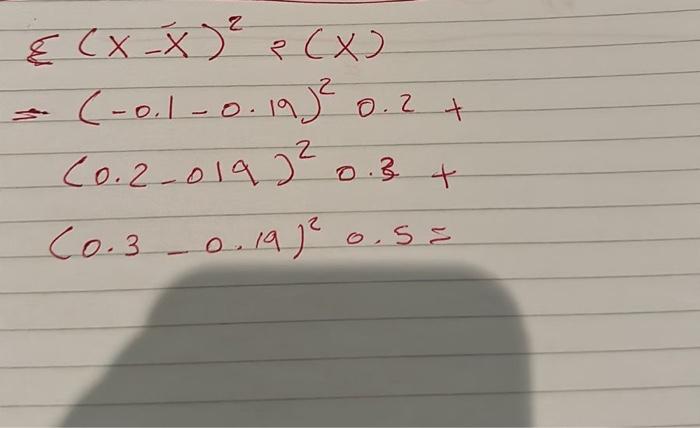 Σ (X - X̄)² P(X)
= (-0.1 - 0.19)² 0.2 +
(0.2 - 019)² 0.3 +
(0.3 - 0.19)² 0.5 =